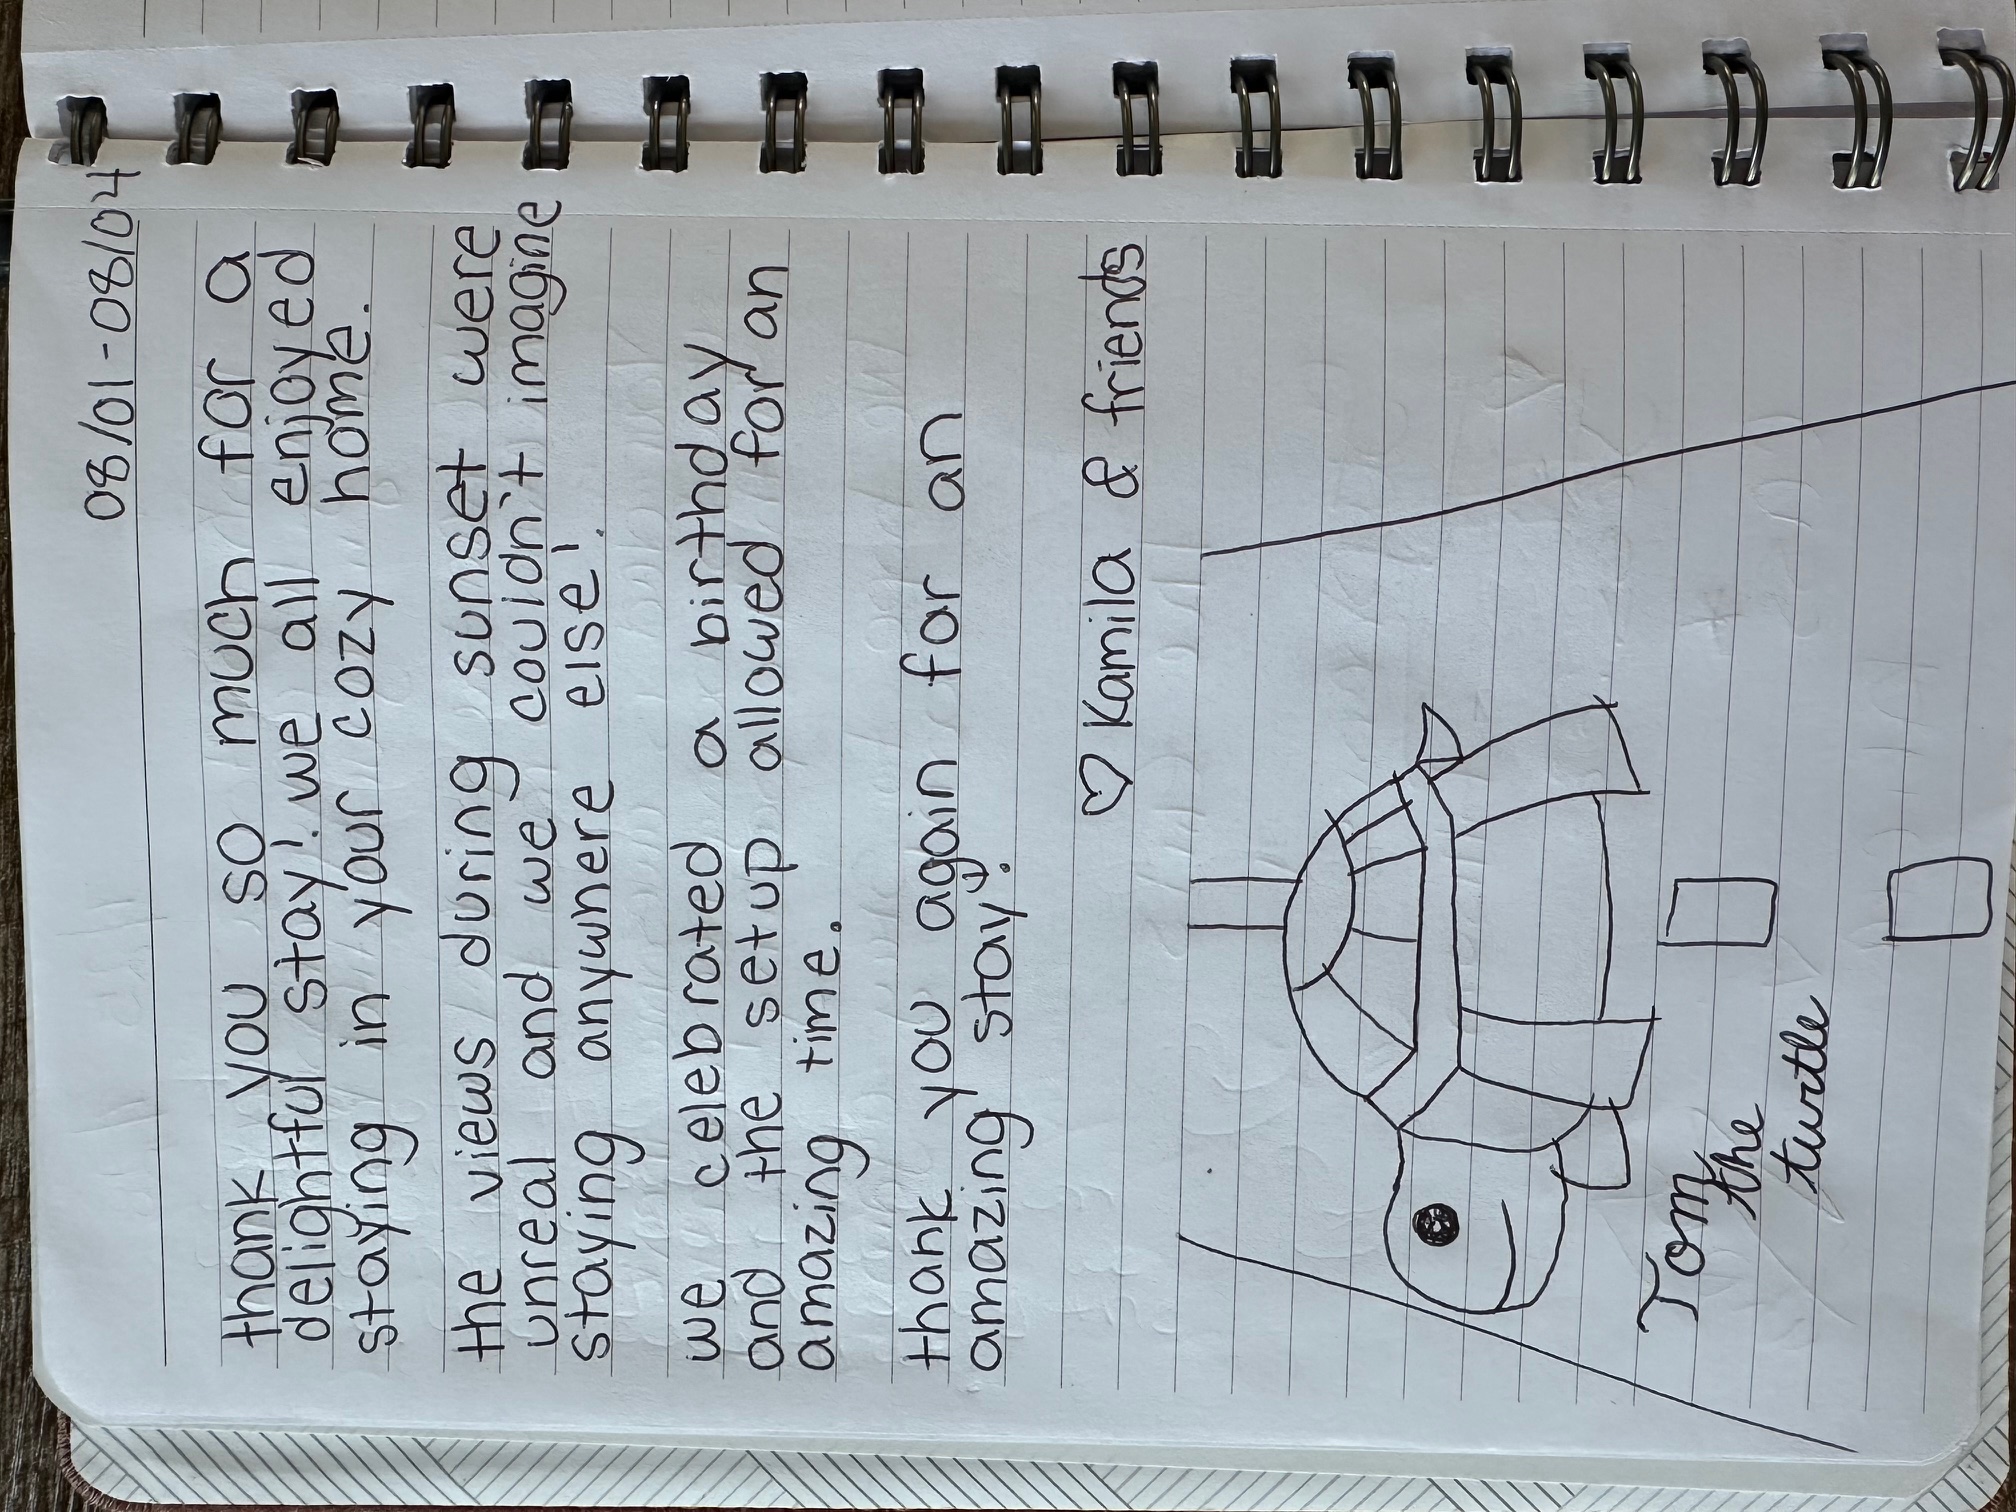 08/01-08/04
thank you so much for a
delightful stay! we all enjoyed
staying in your cozy home.
the views during sunset were
unreal and we couldn't imagine
staying anywhere else!
we celebrated a birthday
and the setup allowed for an
amazing time.
thank you again for an
amazing stay!
♡ Kamila & friends
Tom
the
turtle